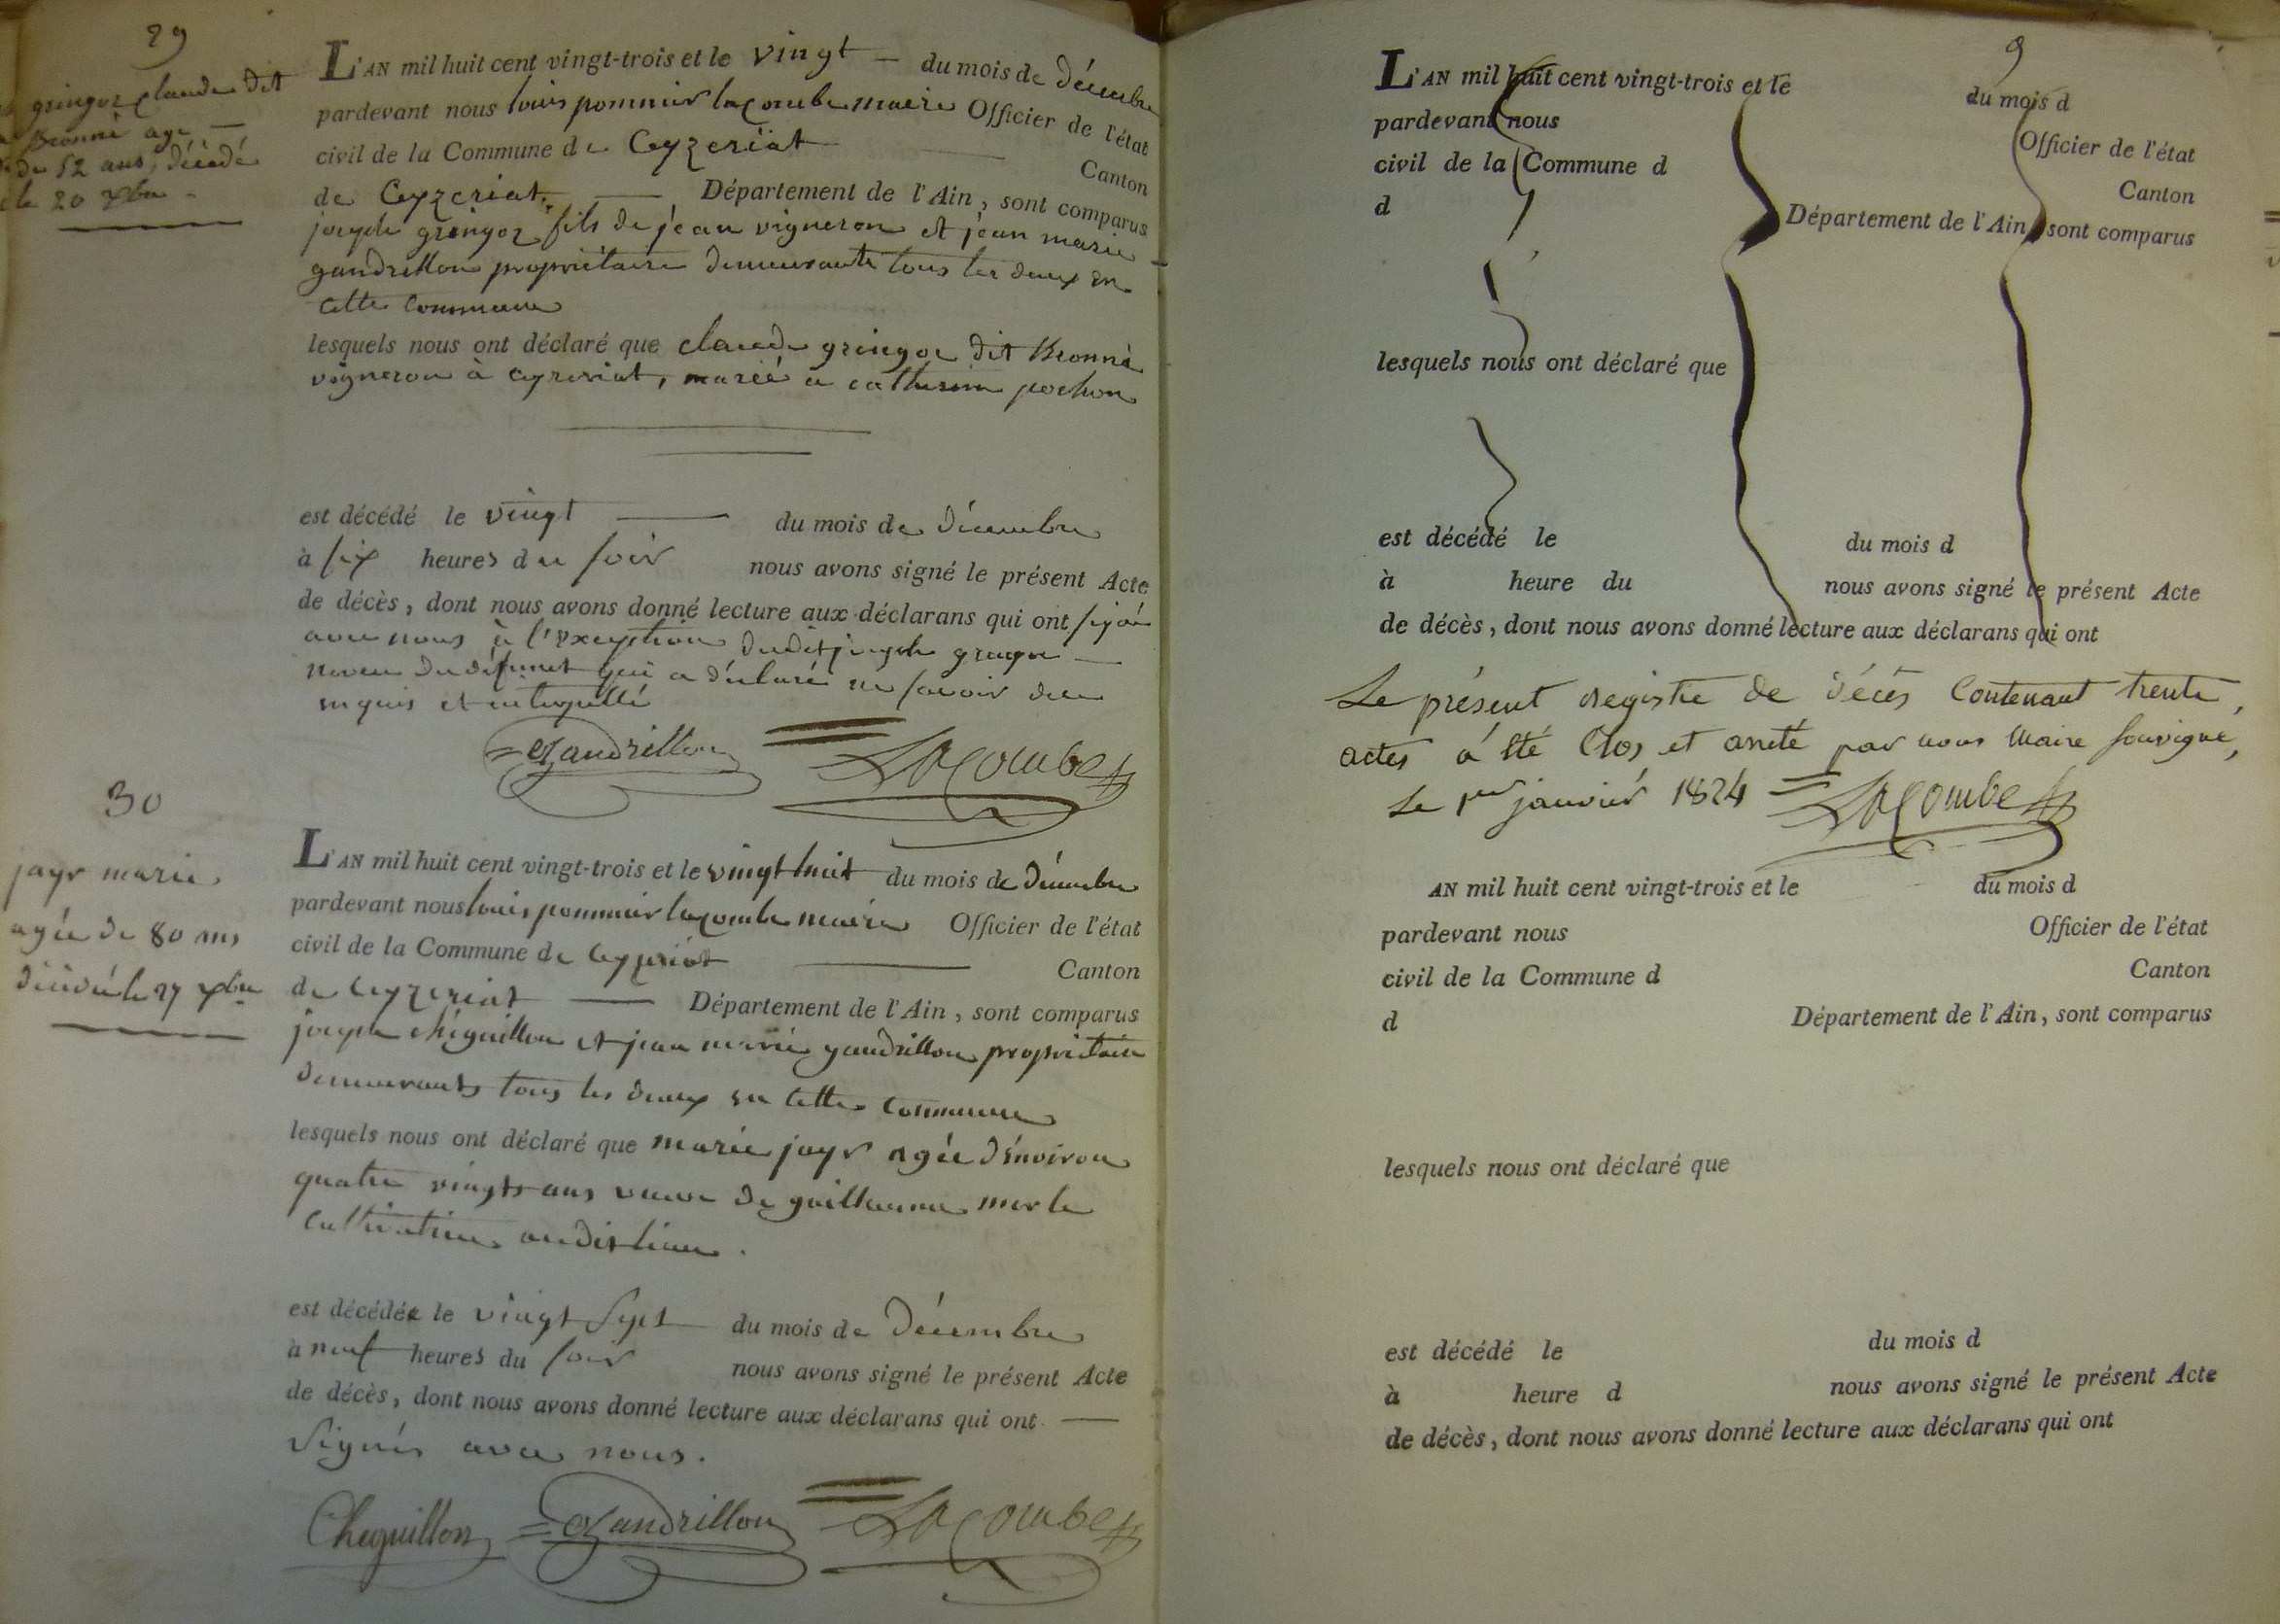 29
gringoz claude dit
Bronne age
de 52 ans, décédé
le 20 xbre
L'AN mil huit cent vingt-trois et le vingt — du mois de décembre
pardevant nous louis pommier lacombe maire Officier de l'état
civil de la Commune de Ceyzeriat — Canton
de Ceyzeriat — Département de l'Ain, sont comparus
joseph gringoz fils de jean vigneron et jean marie
gandrillon propriétaire demeurants tous les deux en
cette commune
lesquels nous ont déclaré que claude gringoz dit Bronne
vigneron à ceyzeriat, marié à catherine pochon
est décédé le vingt — du mois de décembre
à six heures du soir nous avons signé le présent Acte
de décès, dont nous avons donné lecture aux déclarans qui ont signé
avec nous à l'exception dudit joseph
neveu du défunct qui a déclaré ne savoir de ce
enquis et interpellé
Gandrillon Lacombe
30
jayr marie
agée de 80 ans
décédé le 27 xbre
L'AN mil huit cent vingt-trois et le vingt huit du mois de décembre
pardevant nous louis pommier lacombe maire Officier de l'état
civil de la Commune de Ceyzeriat — Canton
de Ceyzeriat — Département de l'Ain, sont comparus
joseph chéguillon et jean marie gandrillon propriétaire
demeurants tous les deux en cette commune
lesquels nous ont déclaré que marie jayr agée d'énviron
quatre vingts ans veuve de guillaume merle
cultivatrice audit lieu.
est décédée le vingt sept du mois de décembre
à neuf heures du soir nous avons signé le présent Acte
de décès, dont nous avons donné lecture aux déclarans qui ont —
signés avec nous.
Cheguillon Gandrillon Lacombe
9
L'AN mil huit cent vingt-trois et le du mois d
pardevant nous Officier de l'état
civil de la Commune d Canton
d Département de l'Ain, sont comparus
lesquels nous ont déclaré que
est décédé le du mois d
à heure du nous avons signé le présent Acte
de décès, dont nous avons donné lecture aux déclarans qui ont
Le présent registre de décès contenant trente
actes a été clos et areté par nous Maire souvigné,
Le 1er janvier 1824 Lacombe
AN mil huit cent vingt-trois et le du mois d
pardevant nous Officier de l'état
civil de la Commune d Canton
d Département de l'Ain, sont comparus
lesquels nous ont déclaré que
est décédé le du mois d
à heure d nous avons signé le présent Acte
de décès, dont nous avons donné lecture aux déclarans qui ont